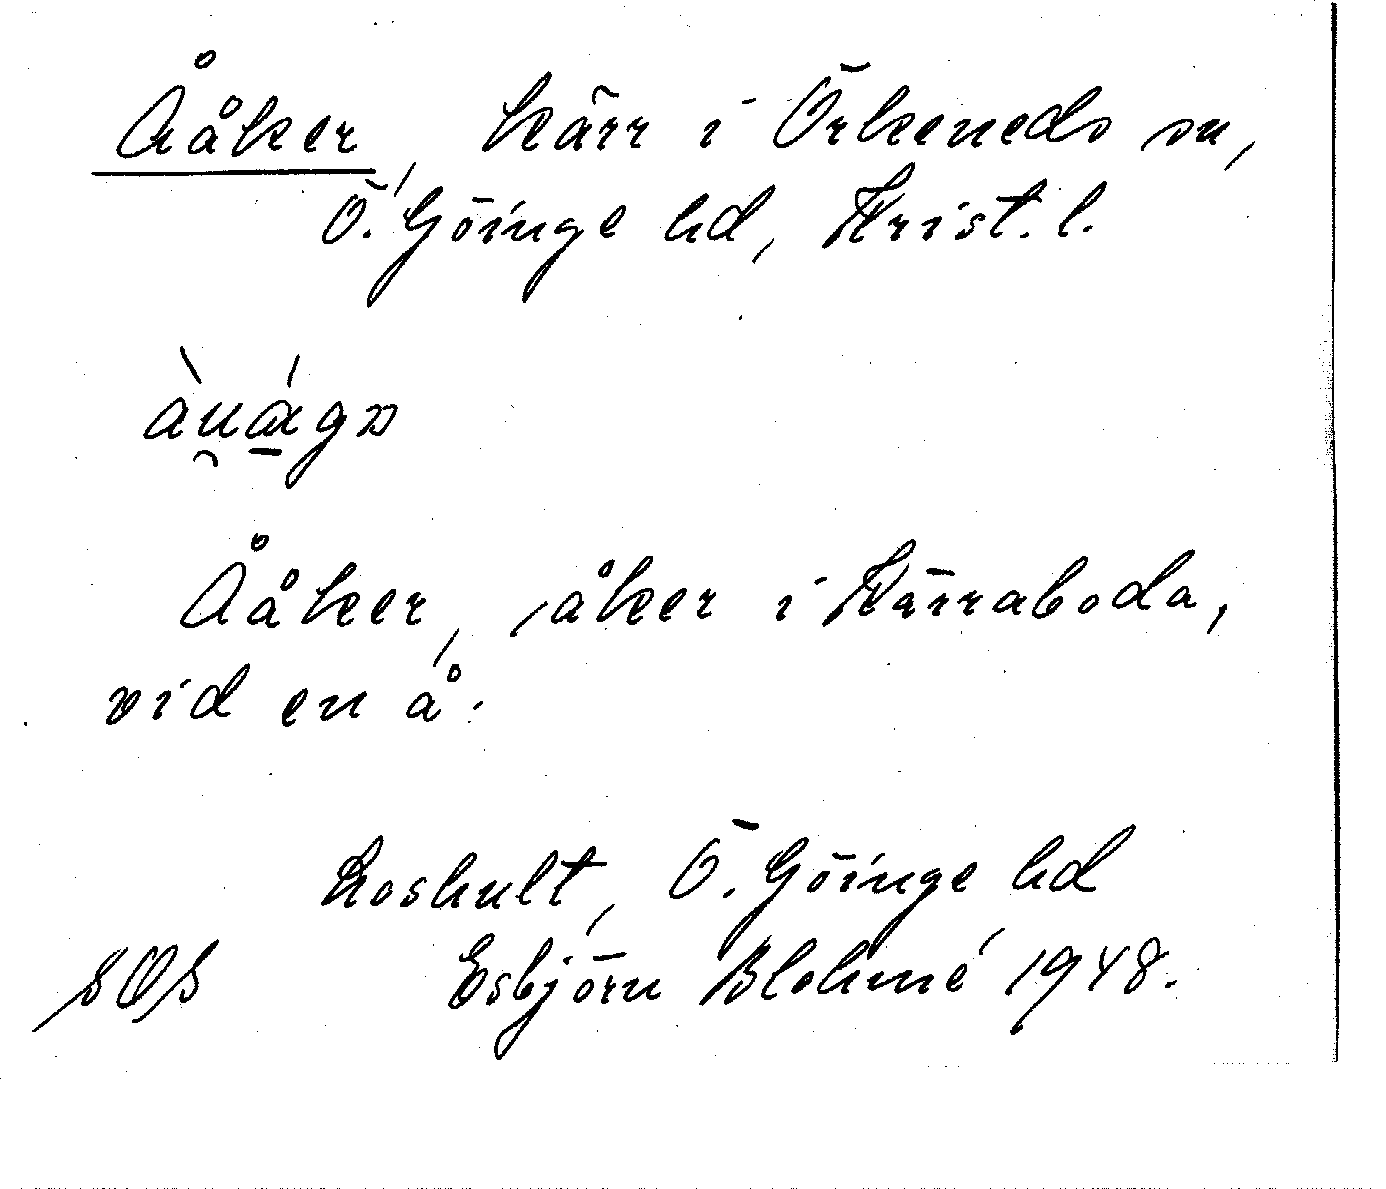 Ååker, kärr i Örkeneds sn,
Ö. Göinge hd, Krist. l.
Ååker, åker i Kärraboda,
vid en å.
Loshult, Ö. Göinge hd
SOS Esbjörn Blohmé 1948.